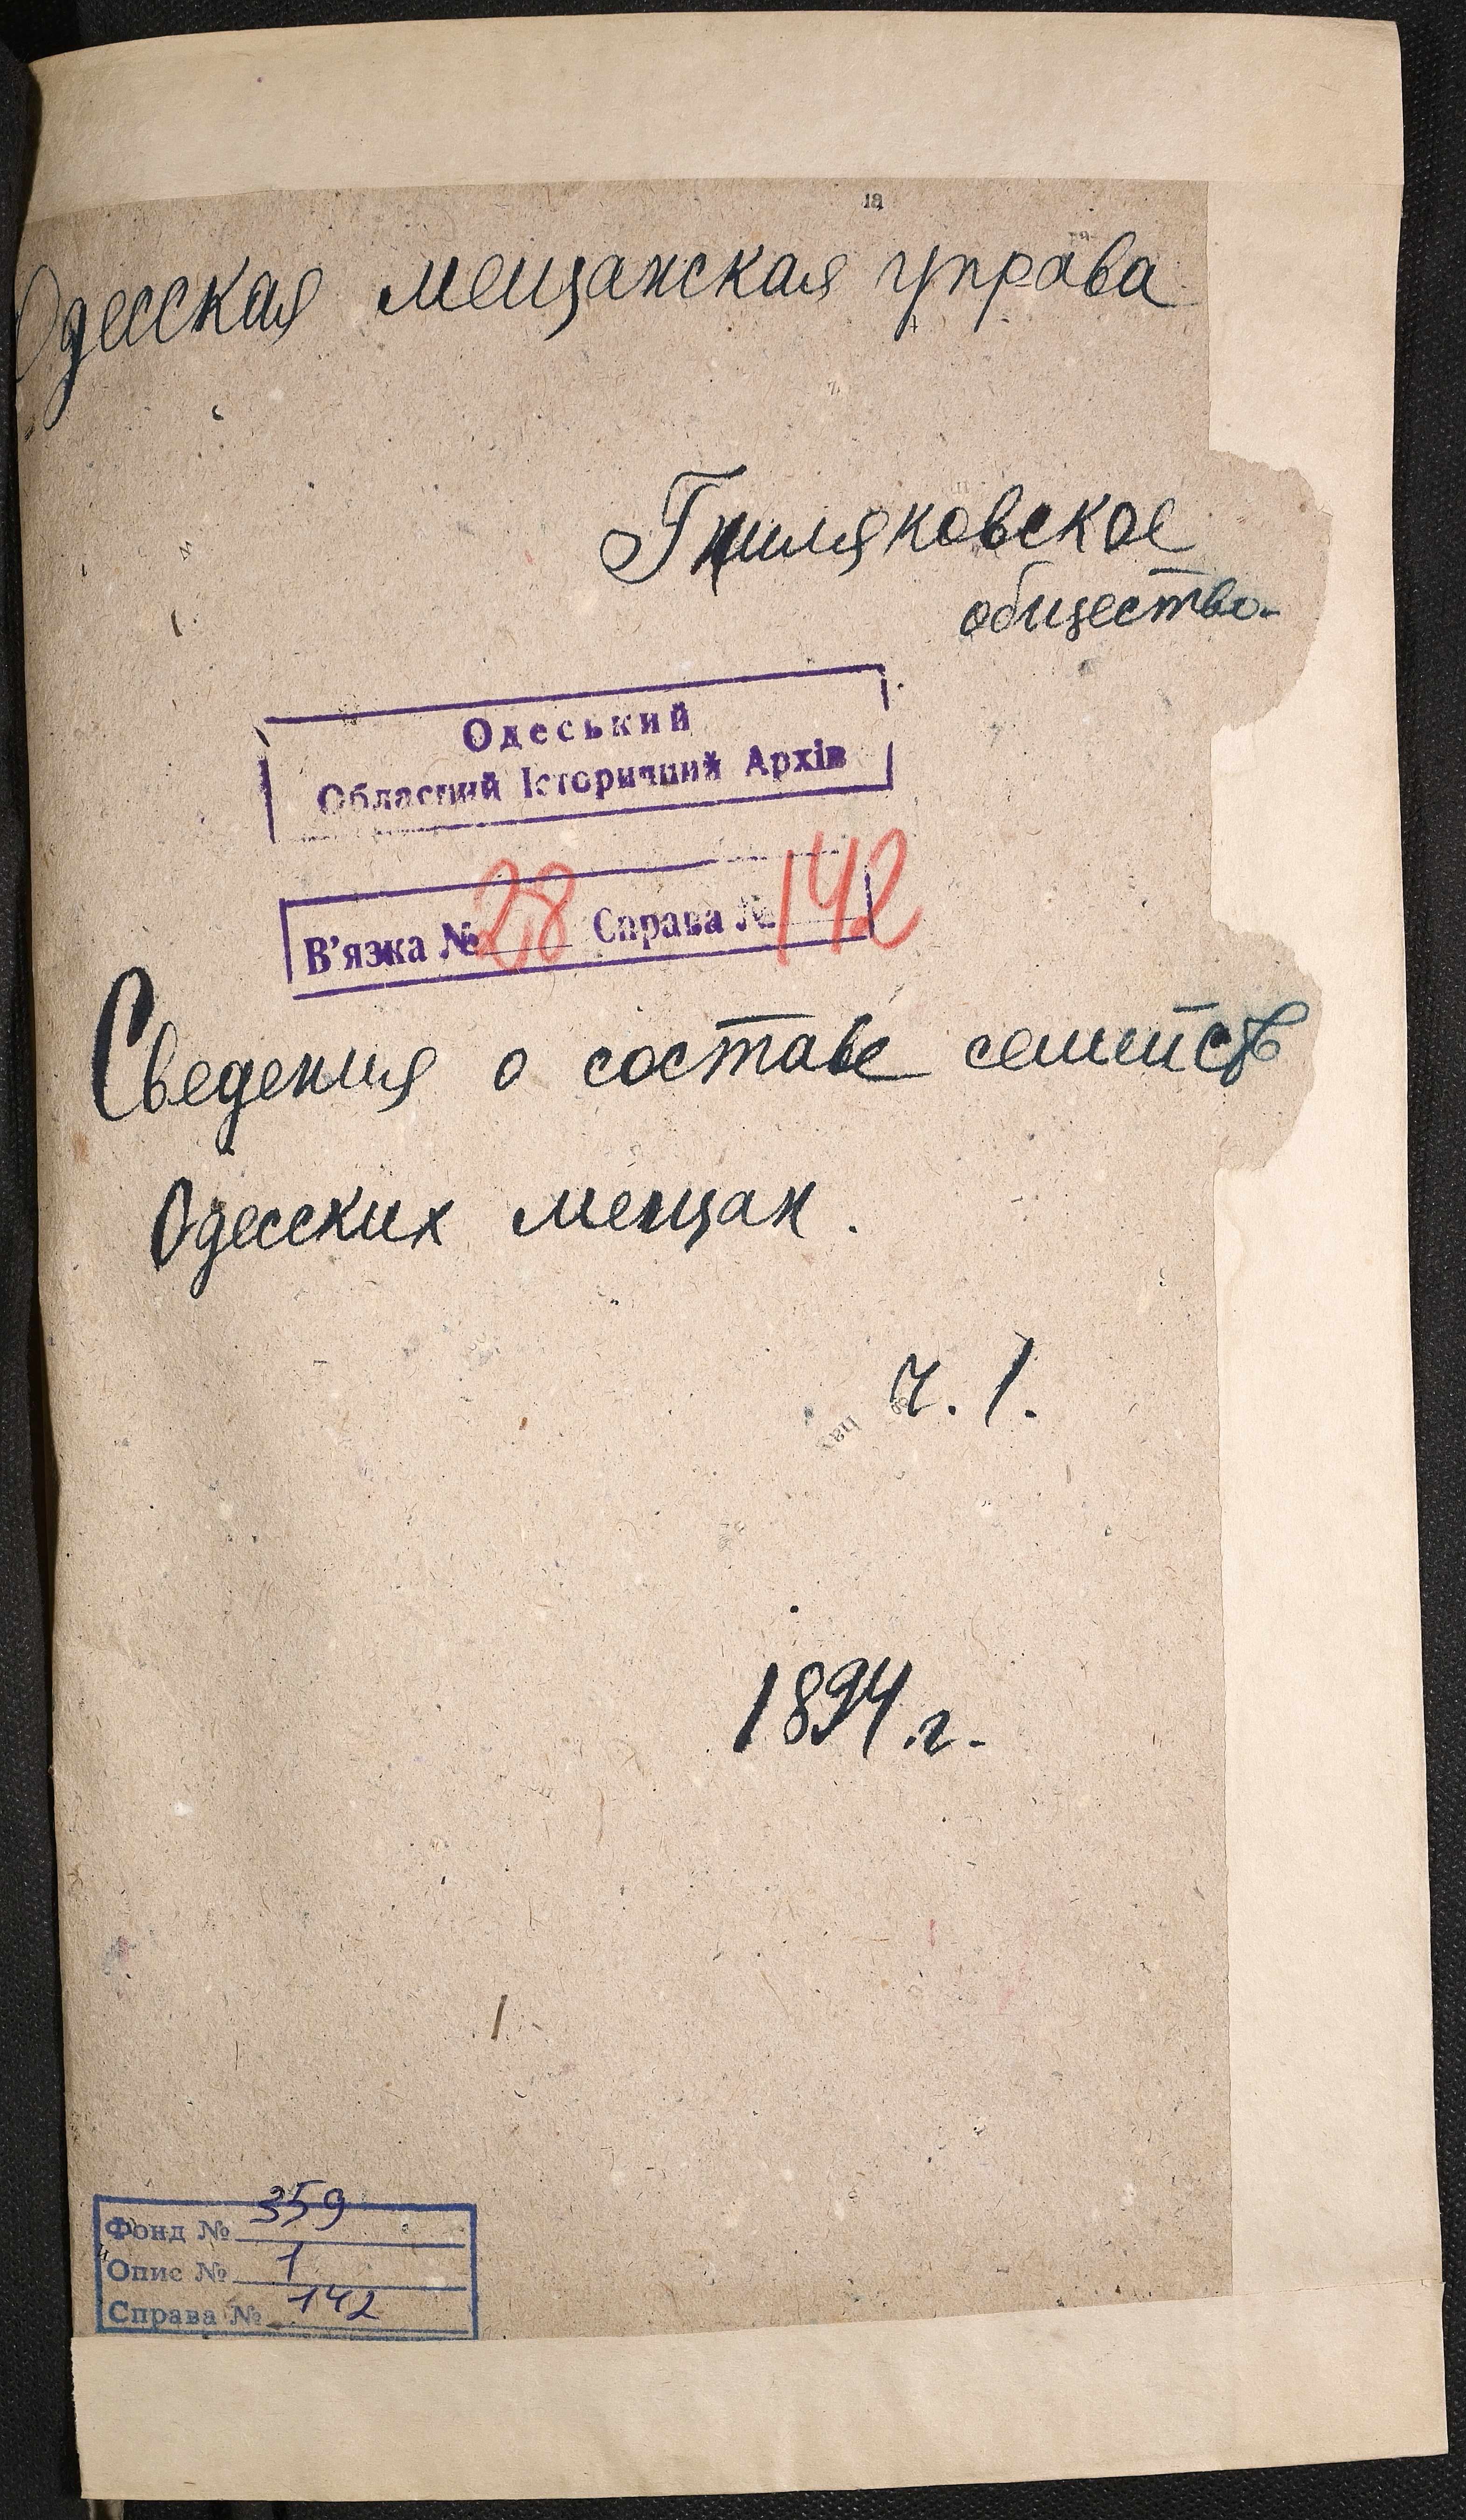 Одесская мещанская управа
Гниляковское
общество.
Одеський
Обласний Історичний Архів
В'язка № 28 Справа № 142
Сведения о составе семейств
Одесских мещан.
ч. 1.
1894 г.
Фонд № 359
Опис № 1
Справа № 142